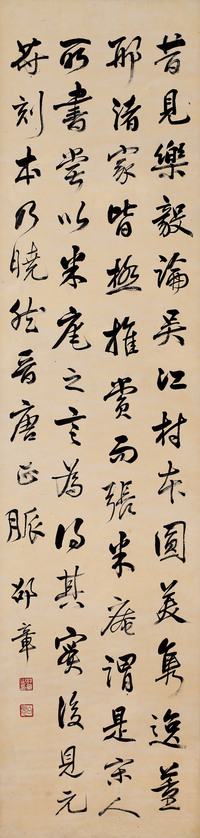 昔見樂毅論吳江村本圓美雋逸董
邢諸家皆極推賞而張米庵謂是宋人
所書嘗以米庵之言為得其實後見元
符刻本乃曉然晉唐正脈 邵章